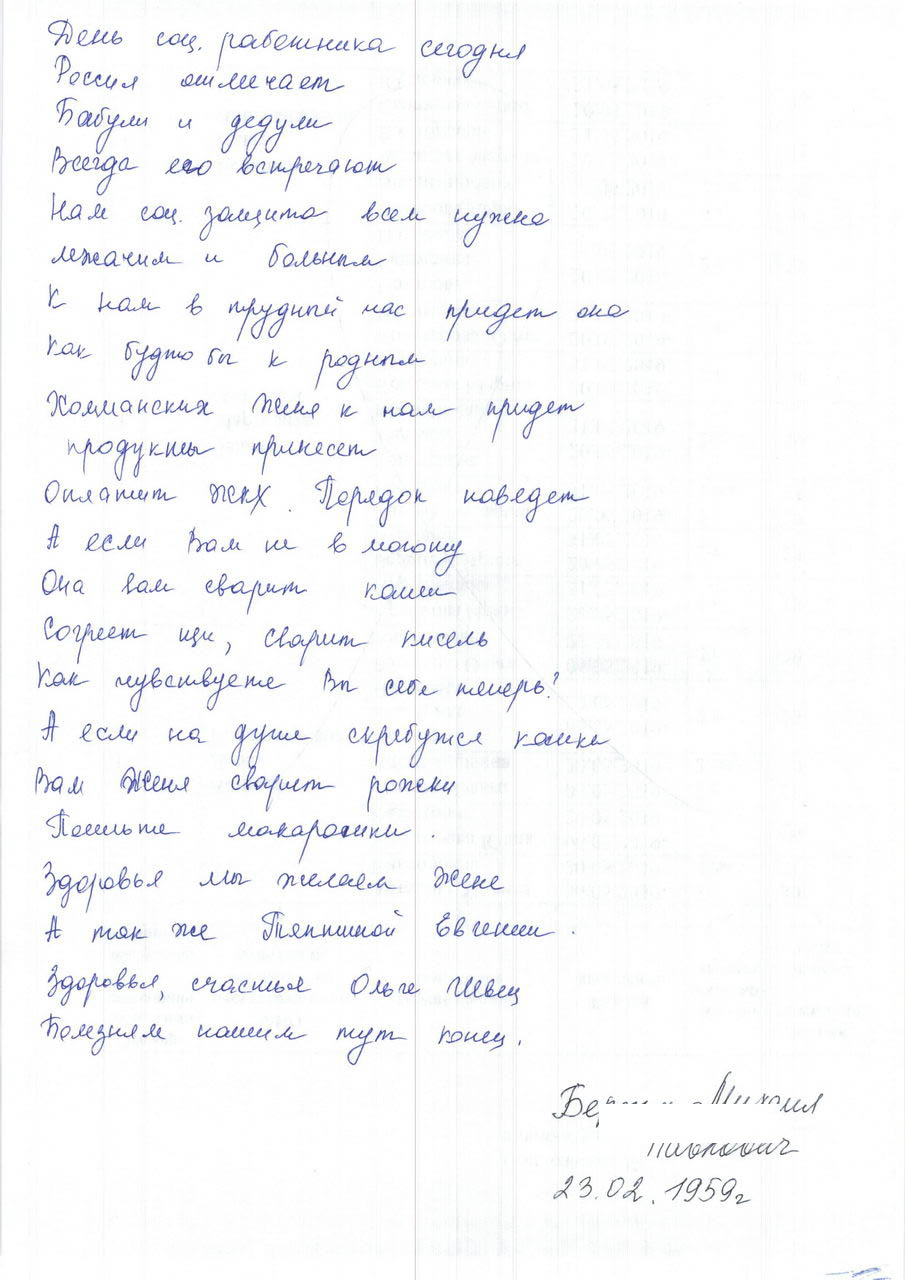 День соц. работника сегодня
Россия отмечает
Бабули и дедули
Всегда его встречают
Нам соц. защита всем нужна
лежачим и больным
К нам в трудный час придет она
Как будто бы к родным
Холманских Женя к нам придет
продукты принесет
Оплатит ЖКХ. Порядок наведет
А если Вам не в моготу
Она вам сварит каши
Согреет щи, сварит кисель
Как чувствуете Вы себе теперь?
А если на душе скребутся кошки
Вам Женя сварит рожки
Пошлите макарошки.
Здоровья мы желаем Жене
А так же Тяпшиной Евгении.
Здоровья, счастья Ольге Швец
Болезням нашим тут конец.
Михаил
23.02.1959г